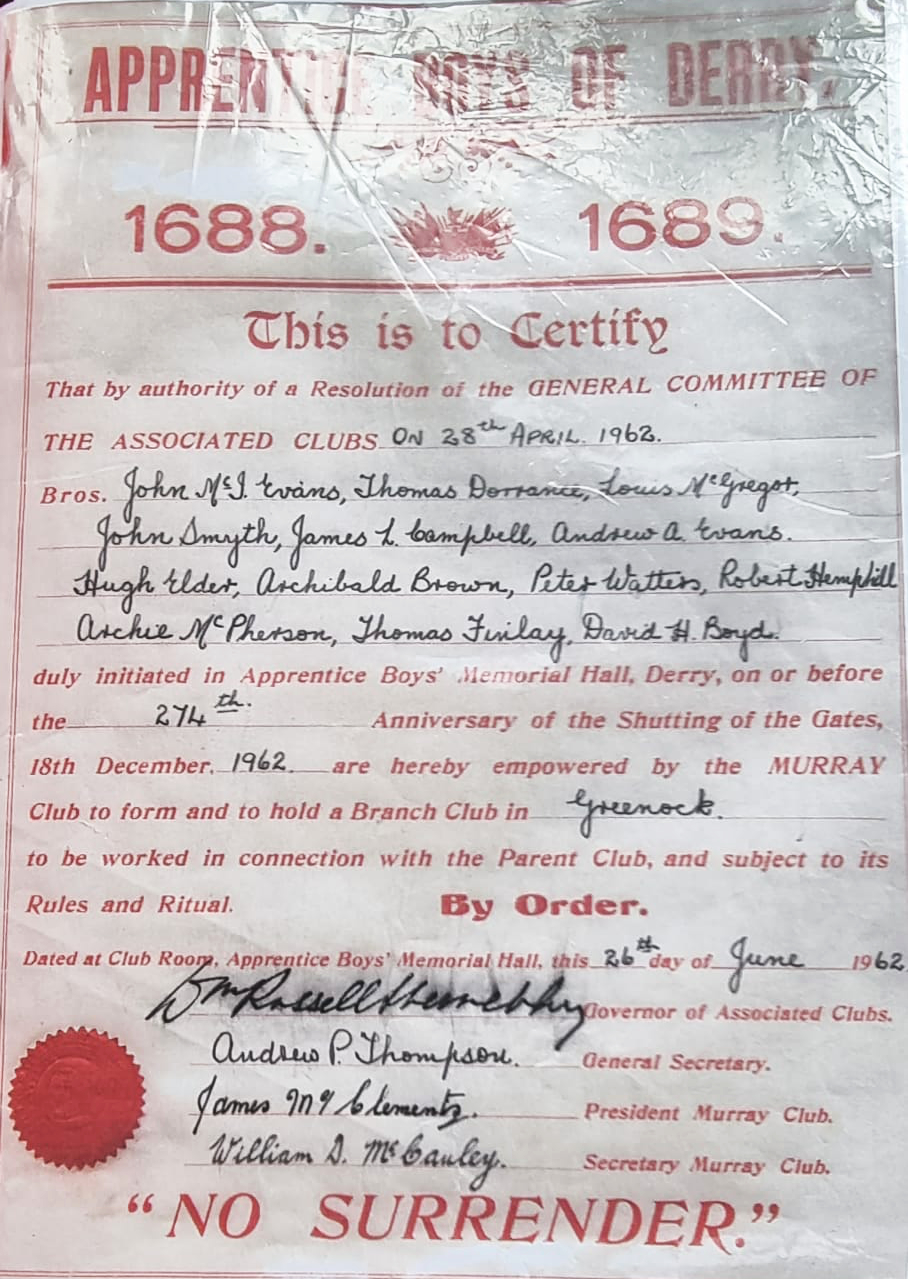 APPRENTICE BOYS OF DERRY.
1688. 1689.
This is to Certify
That by authority of a Resolution of the GENERAL COMMITTEE OF
THE ASSOCIATED CLUBS ON 28th APRIL. 1962.
Bros. John McI. Evans, Thomas Dorrance, Louis McGregor,
John Smyth, James L. Campbell, Andrew A. Evans.
Hugh Elder, Archibald Brown, Peter Watters, Robert Hemphill
Archie McPherson, Thomas Finlay, David H. Boyd.
duly initiated in Apprentice Boys' Memorial Hall, Derry, on or before
the 274th. Anniversary of the Shutting of the Gates,
18th December, 1962. are hereby empowered by the MURRAY
Club to form and to hold a Branch Club in Greenock.
to be worked in connection with the Parent Club, and subject to its
Rules and Ritual. By Order.
Dated at Club Room, Apprentice Boys' Memorial Hall, this 26th day of June 1962
Wm Russell Governor of Associated Clubs.
Andrew P. Thompson. General Secretary.
James Clements. President Murray Club.
William D. McCauley. Secretary Murray Club.
"NO SURRENDER."